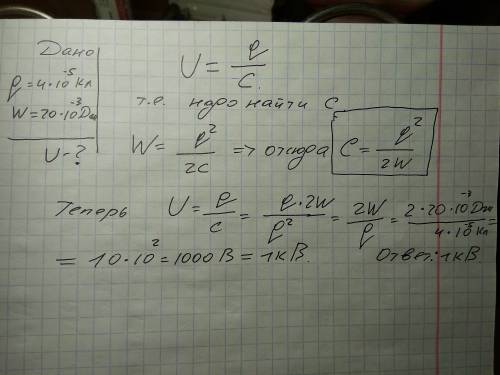 Дано
q = 4·10⁻⁵ Кл
W = 20·10⁻³ Дж
U - ?
U = q/C
т.е. ндро найти C
W = q²/2C => отсюда C = q²/2W
Теперь U = q/C = q·2W/q² = 2W/q = 2·20·10⁻³ Дж/4·10⁻⁵ Кл =
= 10·10² = 1000 В = 1 кВ. Ответ: 1 кВ.